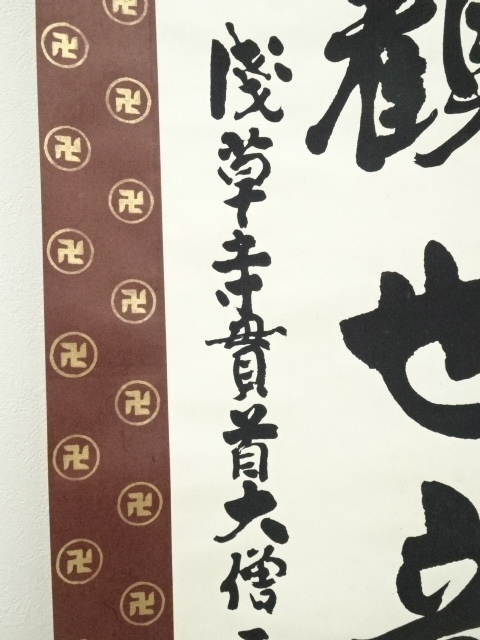 觀世音
淺草寺貫首大僧正